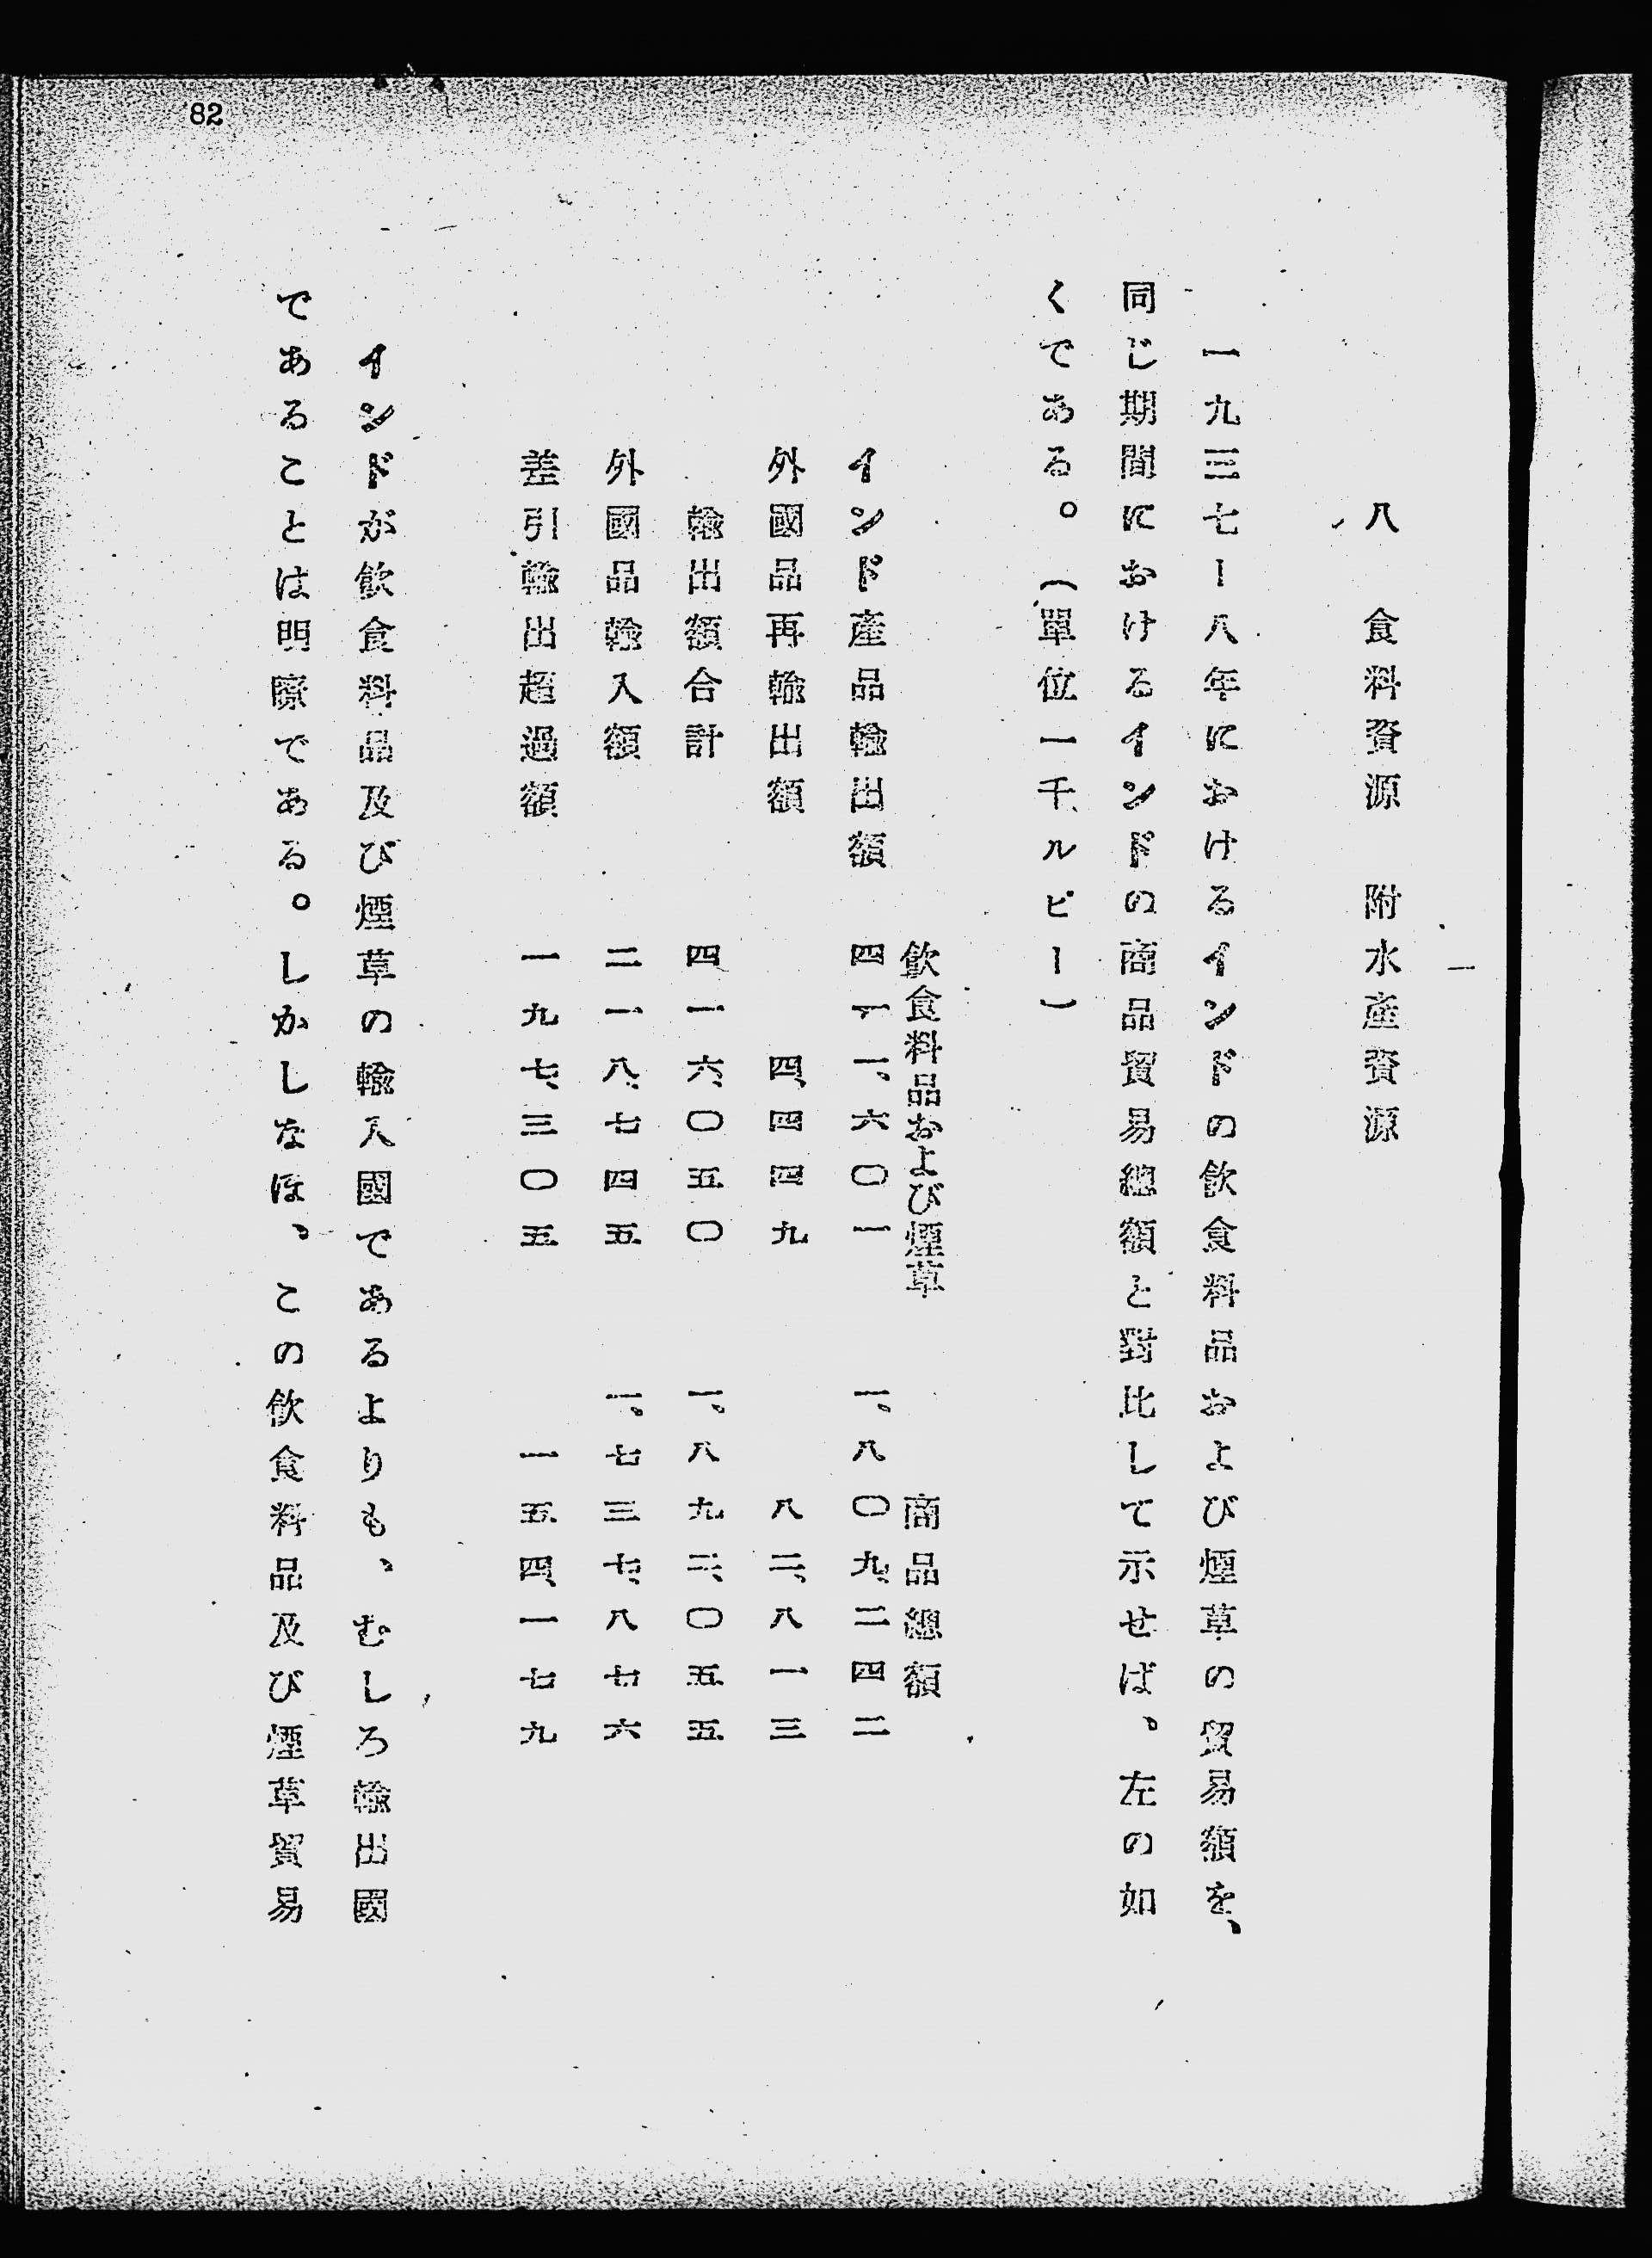 82
八　食料資源　附水產資源
一九三七ー八年におけるインドの飲食料品および煙草の貿易額を、
同じ期間におけるインドの商品貿易總額と對比して示せば、左の如
くである。（單位一千ルピー）
飲食料品および煙草　商品總額
インド產品輸出額　四一一、六〇一　一、八〇九、二四二
外國品再輸出額　四、四四九　八二、八一三
輸出額合計　四一六、〇五〇　一、八九二、〇五五
外國品輸入額　二一八、七四五　一、七三七、八七六
差引輸出超過額　一九七、三〇五　一五四、一七九
インドが飲食料品及び煙草の輸入國であるよりも、むしろ輸出國
であることは明瞭である。しかしなほ、この飲食料品及び煙草貿易